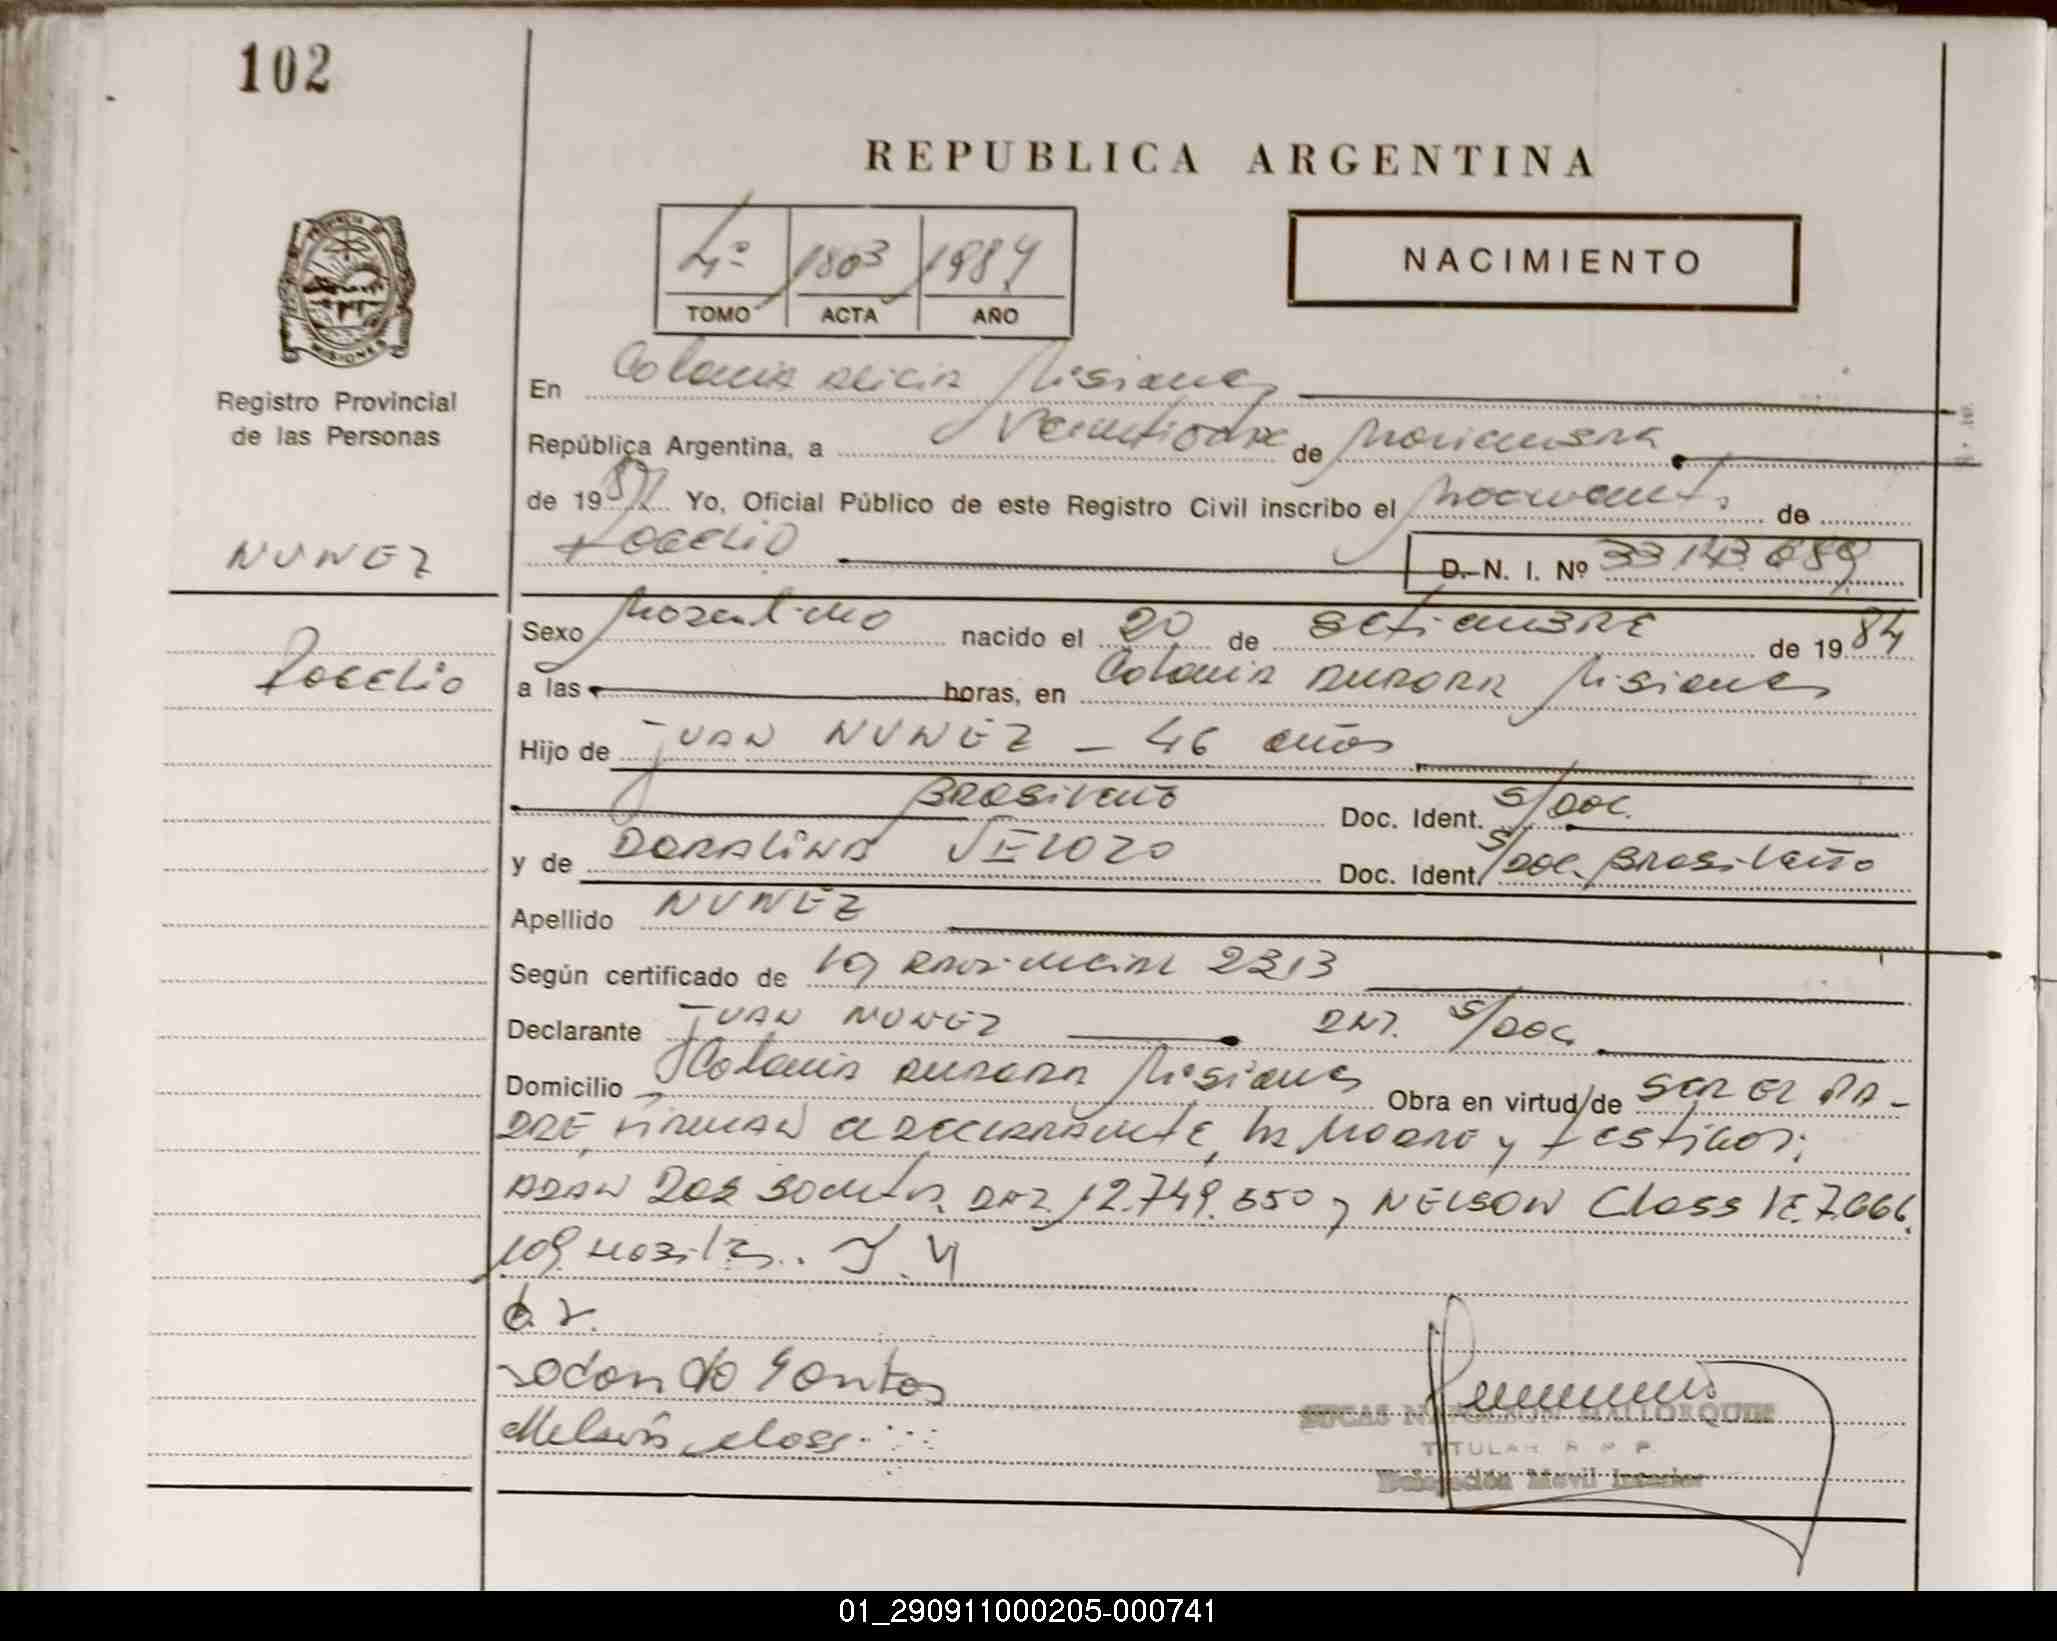 102
REPUBLICA ARGENTINA
4º 1803 1987
TOMO ACTA AÑO
NACIMIENTO
PROVINCIA
MISIONES
Registro Provincial
de las Personas
En Colonia Alicia Misiones
República Argentina, a de Noviembre
de 1987 Yo, Oficial Público de este Registro Civil inscribo el Nacimiento de
Rogelio
D. N. I. Nº 33.143.689
NUNEZ
Rogelio
Sexo Masculino nacido el 20 de Setiembre de 1984
a las horas, en Colonia Aurora Misiones
Hijo de JUAN NUNEZ - 46 años
Brasileño Doc. Ident. S/Doc.
y de DORALINA VELOZO Doc. Ident. S/Doc. Brasileño
Apellido NUNEZ
Según certificado de Ley Provincial 2313
Declarante JUAN NUNEZ DNI. S/Doc.
Domicilio Colonia Aurora Misiones Obra en virtud de ser el PA-
DRE, firman el declarante, la Madre y testigos:
ADAN DOS SANTOS DNI. 12.749.550 y NELSON Closs LE. 7.666.
J. N
d. v.
do Santos
Closs
SUCAS NAPOLEON MALLORQUIN
TITULAR R P P
Delegación Movil Interior
01_290911000205-000741